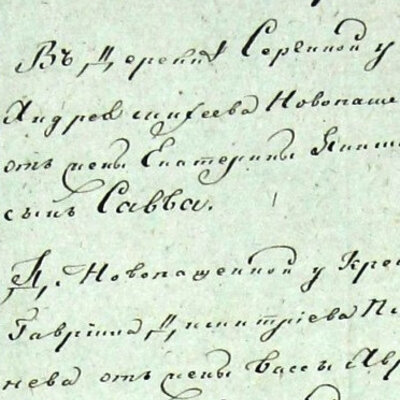 Въ Деревнѣ Сергиной у
Андрея Михеева Новопаше
отъ жены Екатерины
сынъ Савва.
Д. Новопашенной у Кре
Гавріила Дмитріева
нева отъ жены Вассы Авр